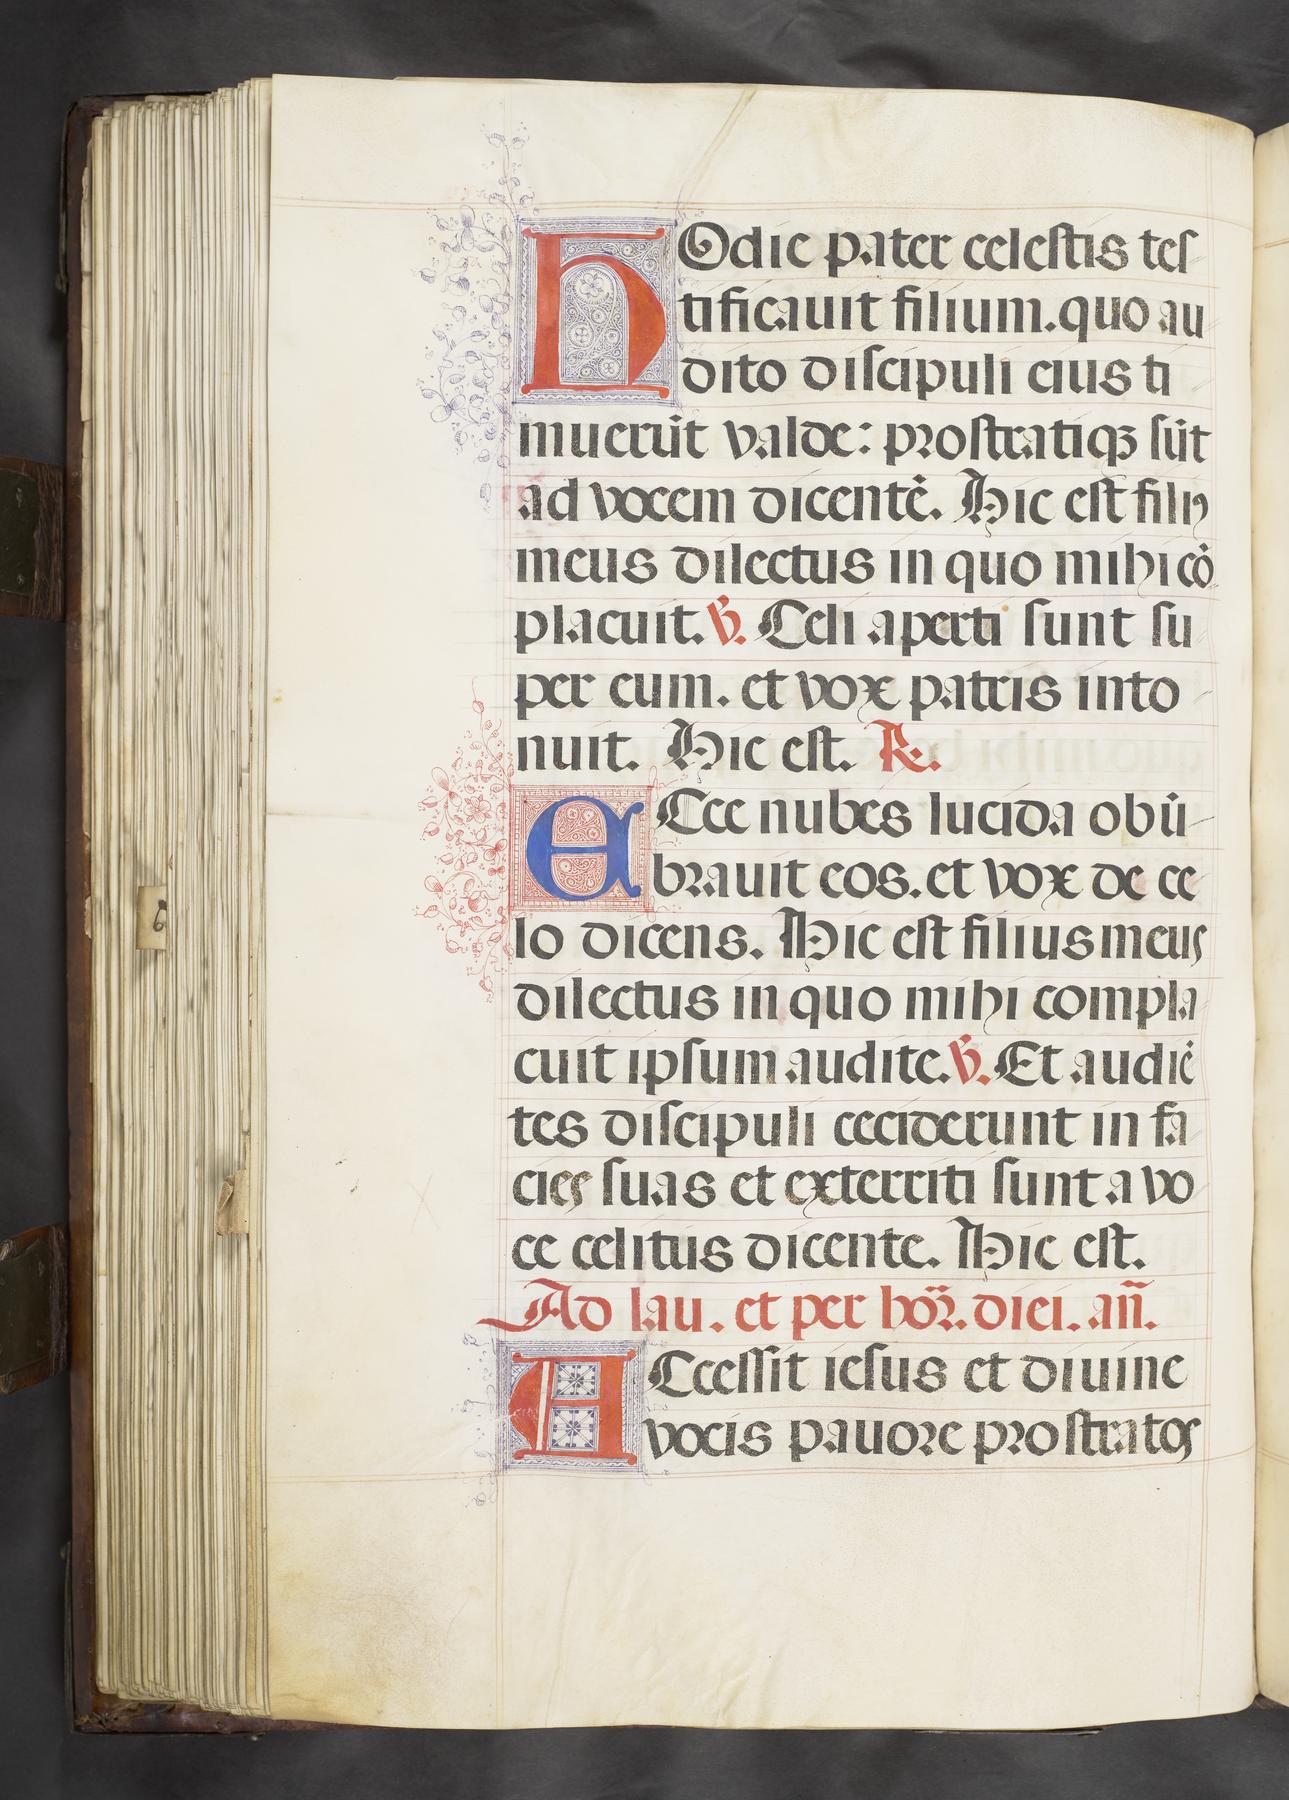 HOdie pater celestis tes
tificauit filium. quo au
dito discipuli eius ti
muerūt valde: prostratiqꝫ sūt
ad vocem dicentē. Hic est filiꝰ
meus dilectus in quo mihi cō
placuit. ℣. Celi aperti sunt su
per eum. et vox patris into
nuit. Hic est. ℟.
ECce nubes lucida obū
brauit eos. et vox de ce
lo dicens. Hic est filius meus
dilectus in quo mihi compla
cuit ipsum audite. ℣. Et audiē
tes discipuli ceciderunt in fa
cies suas et exterriti sunt a vo
ce celitus dicente. Hic est.
Ad lau. et per hor̄. diei. an̄.
ACcessit iesus et diuine
vocis pauore prostratos
6